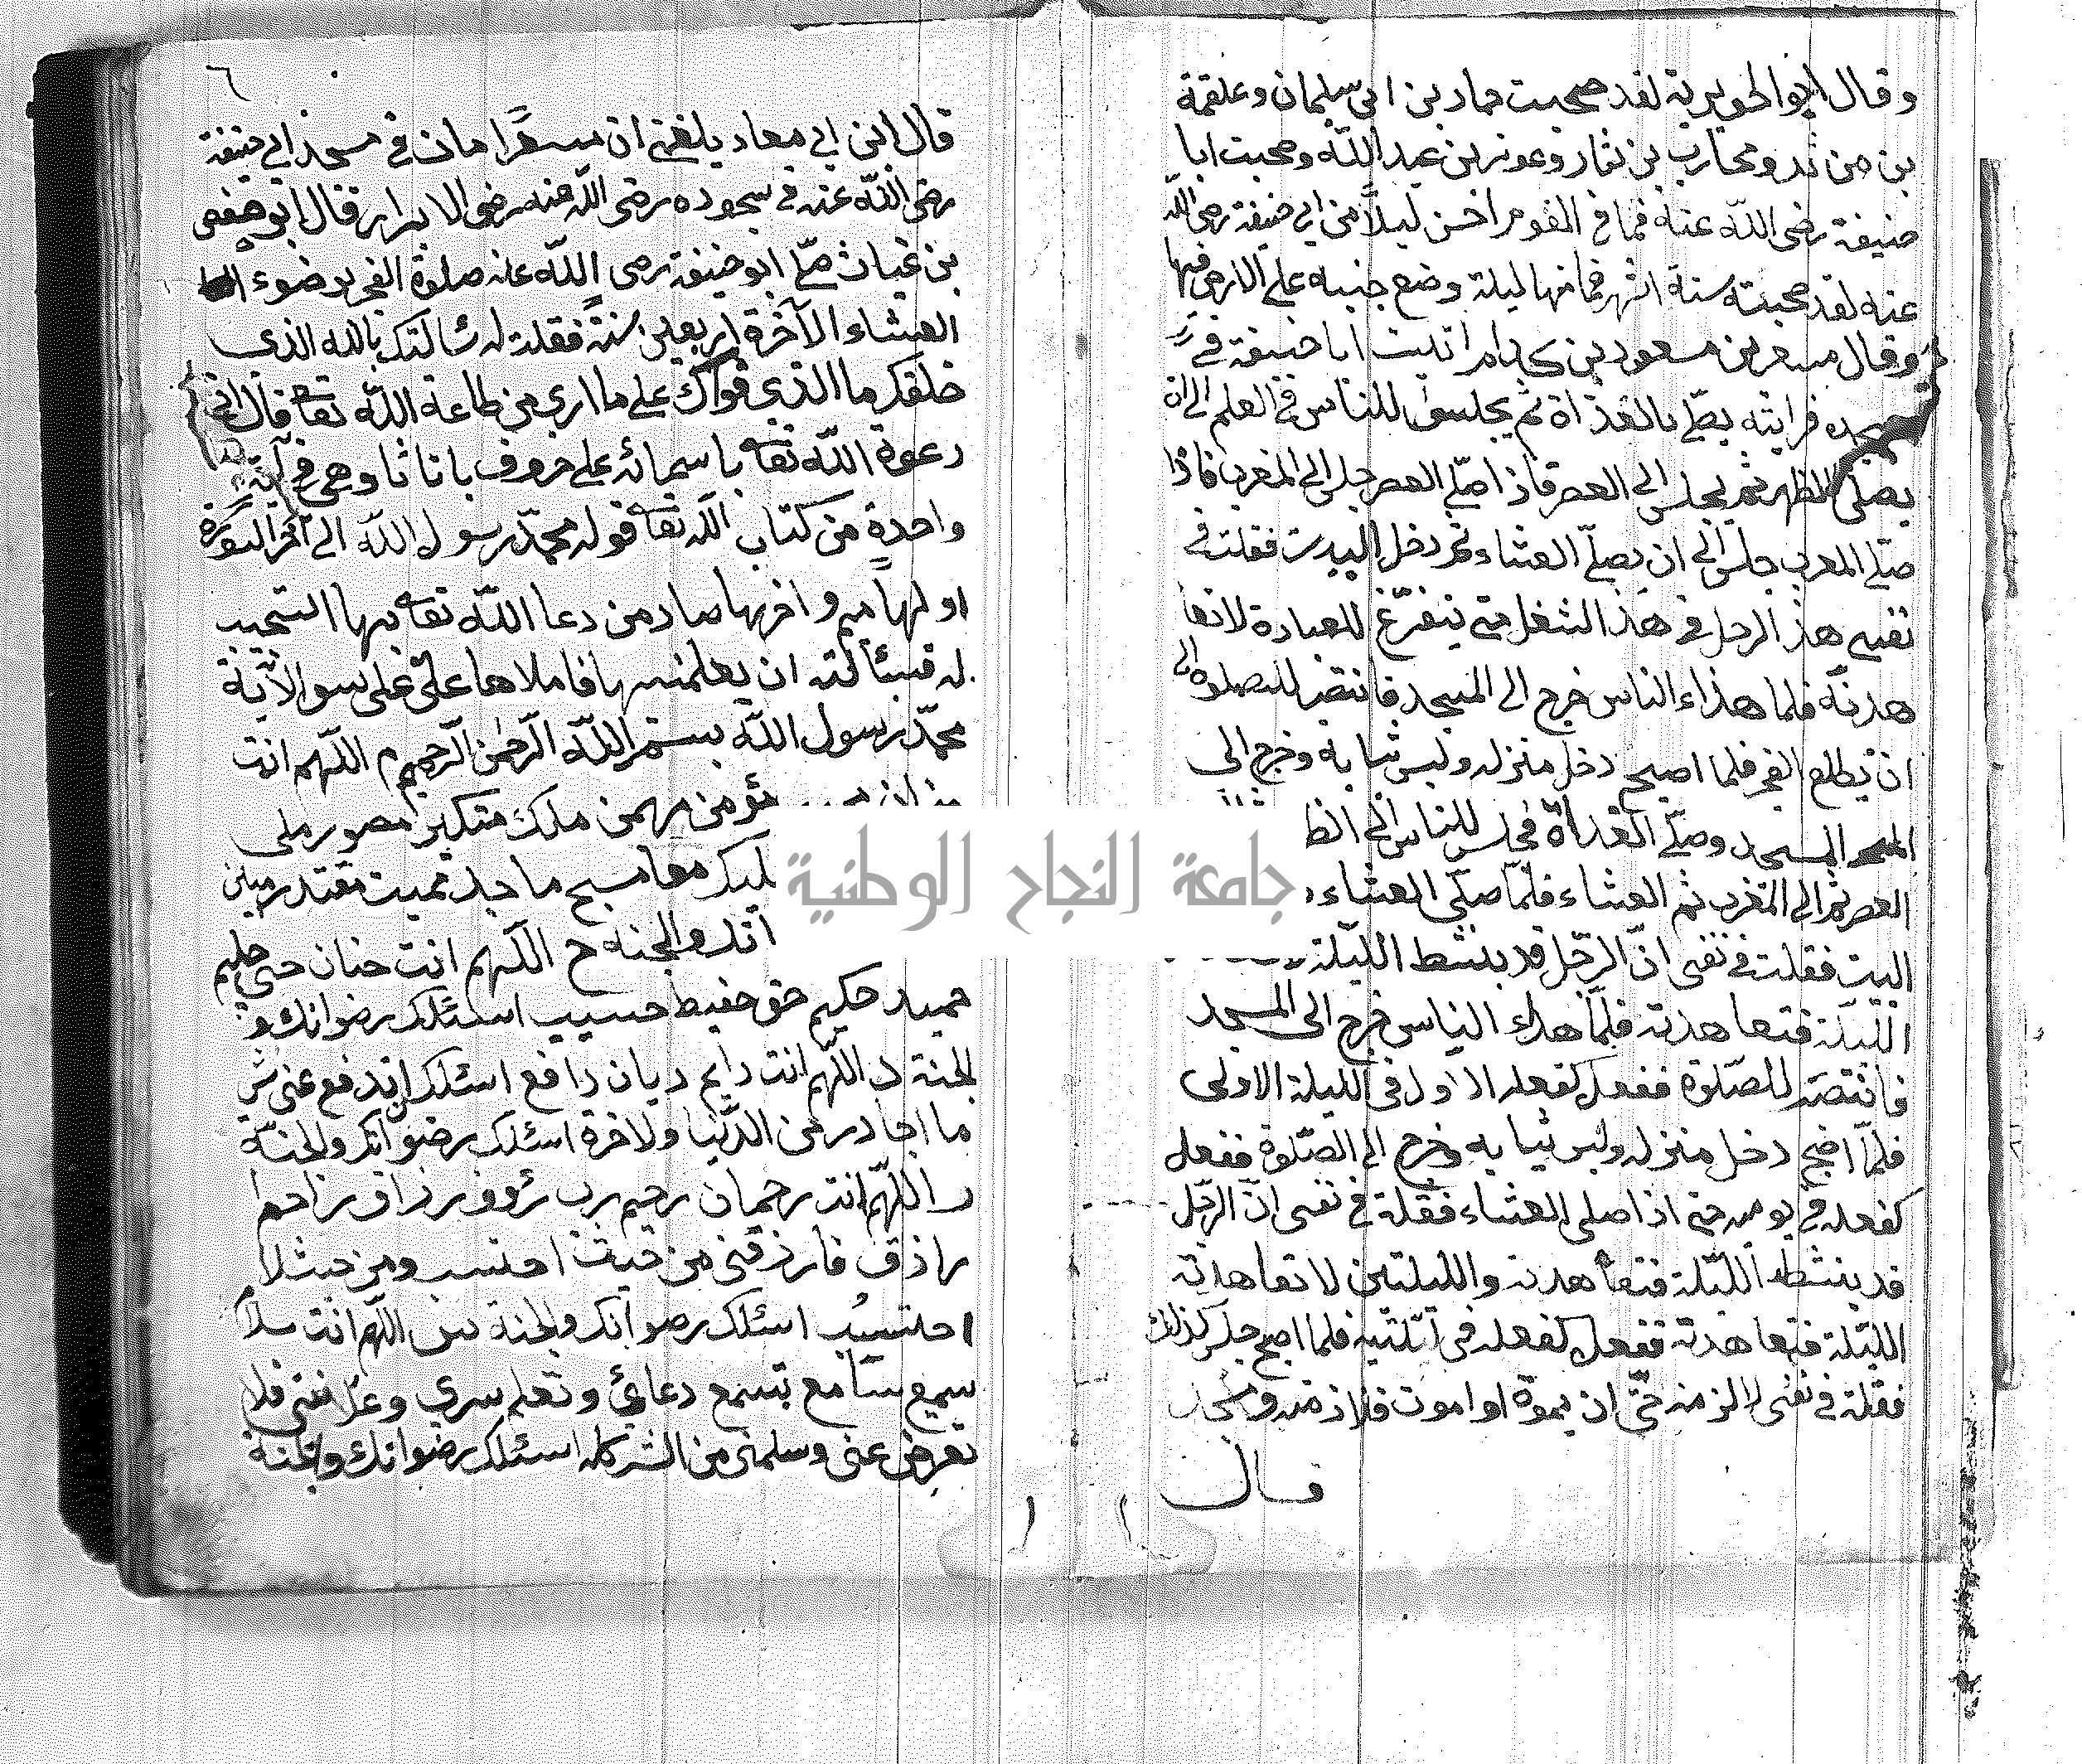 وقال ابو الجويرية لقد صحبت حماد بن ابي سليمان وعلقمة
بن من ثد ومحارب بن ثمار وعون بن عبد الله وصحبت ابا
حنيفة رضى الله عنه فما في القوم احسن ليلاً من ابي حنيفة رضى الله
عنه لقد صحبته ستة اشهر فما منها ليلة وضع جنبه على الارض فيها
وقال مسعر بن مسعود بن كدام اتيت ابا حنيفة في
مسجده فرايته يصلي بالغذاة ثم يجلس للناس في العلم الى ان
يصلى الظهر ثم يجلس الى العصر فاذا صلى العصر جلس الى المغرب فاذا
صلى المغرب جلس الى ان يصلي العشاء وثم دخل البيت فقلت في
نفسي هذ الرجل في هذ الشغل متى يتفرغ للعبادة لاتعا
هدنه فلما هذاء الناس خرج الى المسجد فانتصر للصلوة الى
ان يطلع الفجر فلما اصبح دخل منزله ولبس ثيا به وخرج الى
المسجد وصلى الغداة فجلس للناس الى الظ
العصر ثم الى المغرب ثم العشاء فلما صلى العشاء
البيت فقلت في نفسى ان الرجل قد ينشط الليلة
الليلة فتعا هدته فلما هداء الناس خرج الى المسجد
فانتصر للصلوة ففعل كفعله الاول في الليلة الاولى
فلما اصبح دخل منزله ولبس ثيا به وخرج الى الصلوة ففعل
كفعله في يوميه حتى اذا صلى العشاء فقلة في نفسى ان الرجل
قد ينشط الليلة فتعا هدته والليلتين لا تعا هدنه
الليلة فتعا هدته ففعل كفعله في فلما اصبح جلس كذلك
فقلة في نفسى لالزمنه حتى ان يموة او اموت فلازمته
قال
٦
قال ابن ابي معاد بلغني ان مسعرا مات في مسجد ابي حنيفة
رضى الله عنه في سجوده رضى الله عنه رضى الابرار قال ابو حفص
بن غياث صلى ابو حنيفة رضى الله عنه صلوة الفجر بوضوء
العشاء الآخرة اربعين سنة فقلة له سالتك بالله الذى
خلقك ما الذي قواك على ما ارى من طاعة الله تعا قال اني
دعوة الله تعا باسمائه على حروف با تا ثا وهى في آية
واحدة من كتاب الله تعا قوله محمد رسول الله الى آخر السورة
اولها ميم واخرها صاد من دعا الله تعا بها استجيب
له فسئالته ان يعلمنيها فاملاها على على سو الآية
محمد رسول الله بسم الله الرحمن الرحيم م اللهم انت
مؤمن مهمن مالك متكبر مصور ملى
ليك معا مسبح ماجد مميت مقتدر مبين
انك والجنة ح اللهم انت حنان حي حليم
حميد حكيم حق حفيظ حسيب اسئلك رضوانك و
لجنة د اللهم انت دايم ديان دافع اسئلك ان تدفع عنى شر
ما احاذر من الدنيا ولاخرة اسئلك رضوانك والجنة
ر اللهم انت رحمان رحيم رب رؤوف رزاق راحم
رازق فارزقنى من حيث احتسب ومن حيث لا
احتسب اسئلك رضوانك والجنة س اللهم انت سلا
سميع سامع تسمع دعائي وتعلم سري وعلانيتي فلا
تعرض عنى وسلمنى من الشر كله اسئلك رضوانك والجنة
جامعة النجاح الوطنية